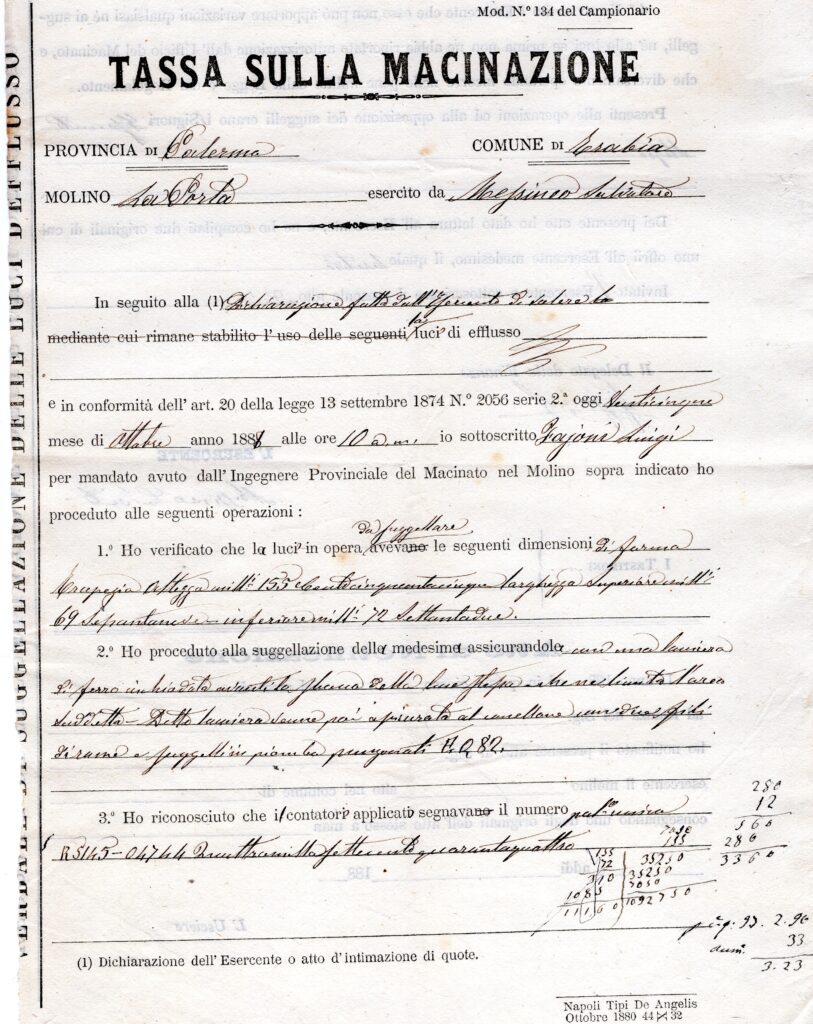 Mod. N.º 134 del Campionario
TASSA SULLA MACINAZIONE
PROVINCIA DI Palermo COMUNE DI Trabia
MOLINO La Porta esercito da Messineo Salvatore
In seguito alla (1) Dichiarazione fatta dall'Esercente di valere la
mediante cui rimane stabilito l'uso delle seguenti luci di efflusso
e in conformità dell'art. 20 della legge 13 settembre 1874 N.º 2056 serie 2.ª oggi Venticinque
mese di Ottobre anno 188 alle ore 10 a.m. io sottoscritto Luigi
per mandato avuto dall'Ingegnere Provinciale del Macinato nel Molino sopra indicato ho
proceduto alle seguenti operazioni :
da suggellare
1.º Ho verificato che la luci in opera avevano le seguenti dimensioni di forma
Trapezia Altezza mill.i 155 Centocinquantacinque larghezza Superiore mill.i
69 Sessantanove - inferiore mill.i 72 Settantadue.
2.º Ho proceduto alla suggellazione della medesima assicurandola con una lamiera
di ferro inchiodata avante la bocca della luce stessa che ne limita l'area
suddetta - Detta lamiera venne poi assicurata al canellone con due fili
di rame e suggelli in piombo punzonati F. 0,82.
3.º Ho riconosciuto che il contatori applicati segnavano il numero
R 5145 - 04744 Quattromillasettecentoquarantaquattro
280
12
560
280
3360
155
72
310
1085
11160
7050
155
35250
35250
7050
1092750
93. 2.90
33
3.23
(1) Dichiarazione dell'Esercente o atto d'intimazione di quote.
Napoli Tipi De Angelis
Ottobre 1880 44 X 32
VERBALE DI SUGGELLAZIONE DELLE LUCI D'EFFLUSSO